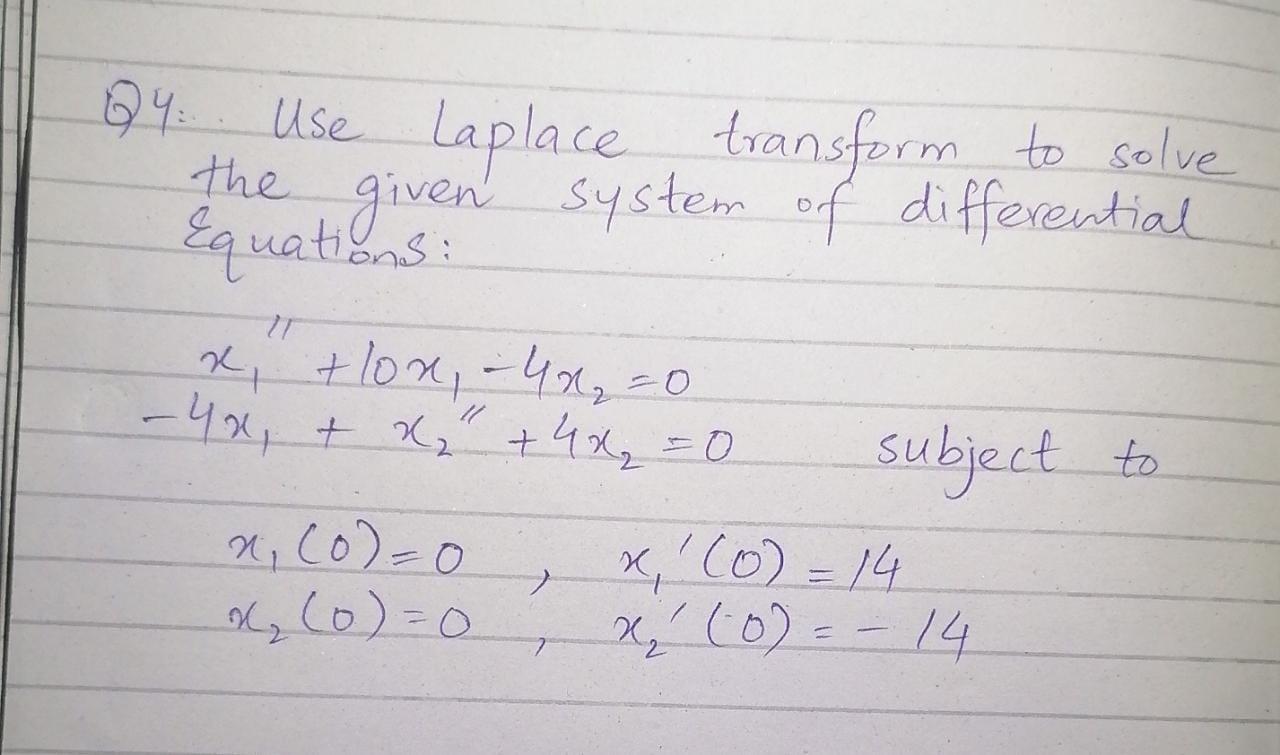 Q4: Use Laplace transform to solve
the given system of differential
Equations:
x₁'' + 10x₁ - 4x₂ = 0
-4x₁ + x₂'' + 4x₂ = 0 subject to
x₁(0) = 0 , x₁'(0) = 14
x₂(0) = 0 , x₂'(0) = - 14